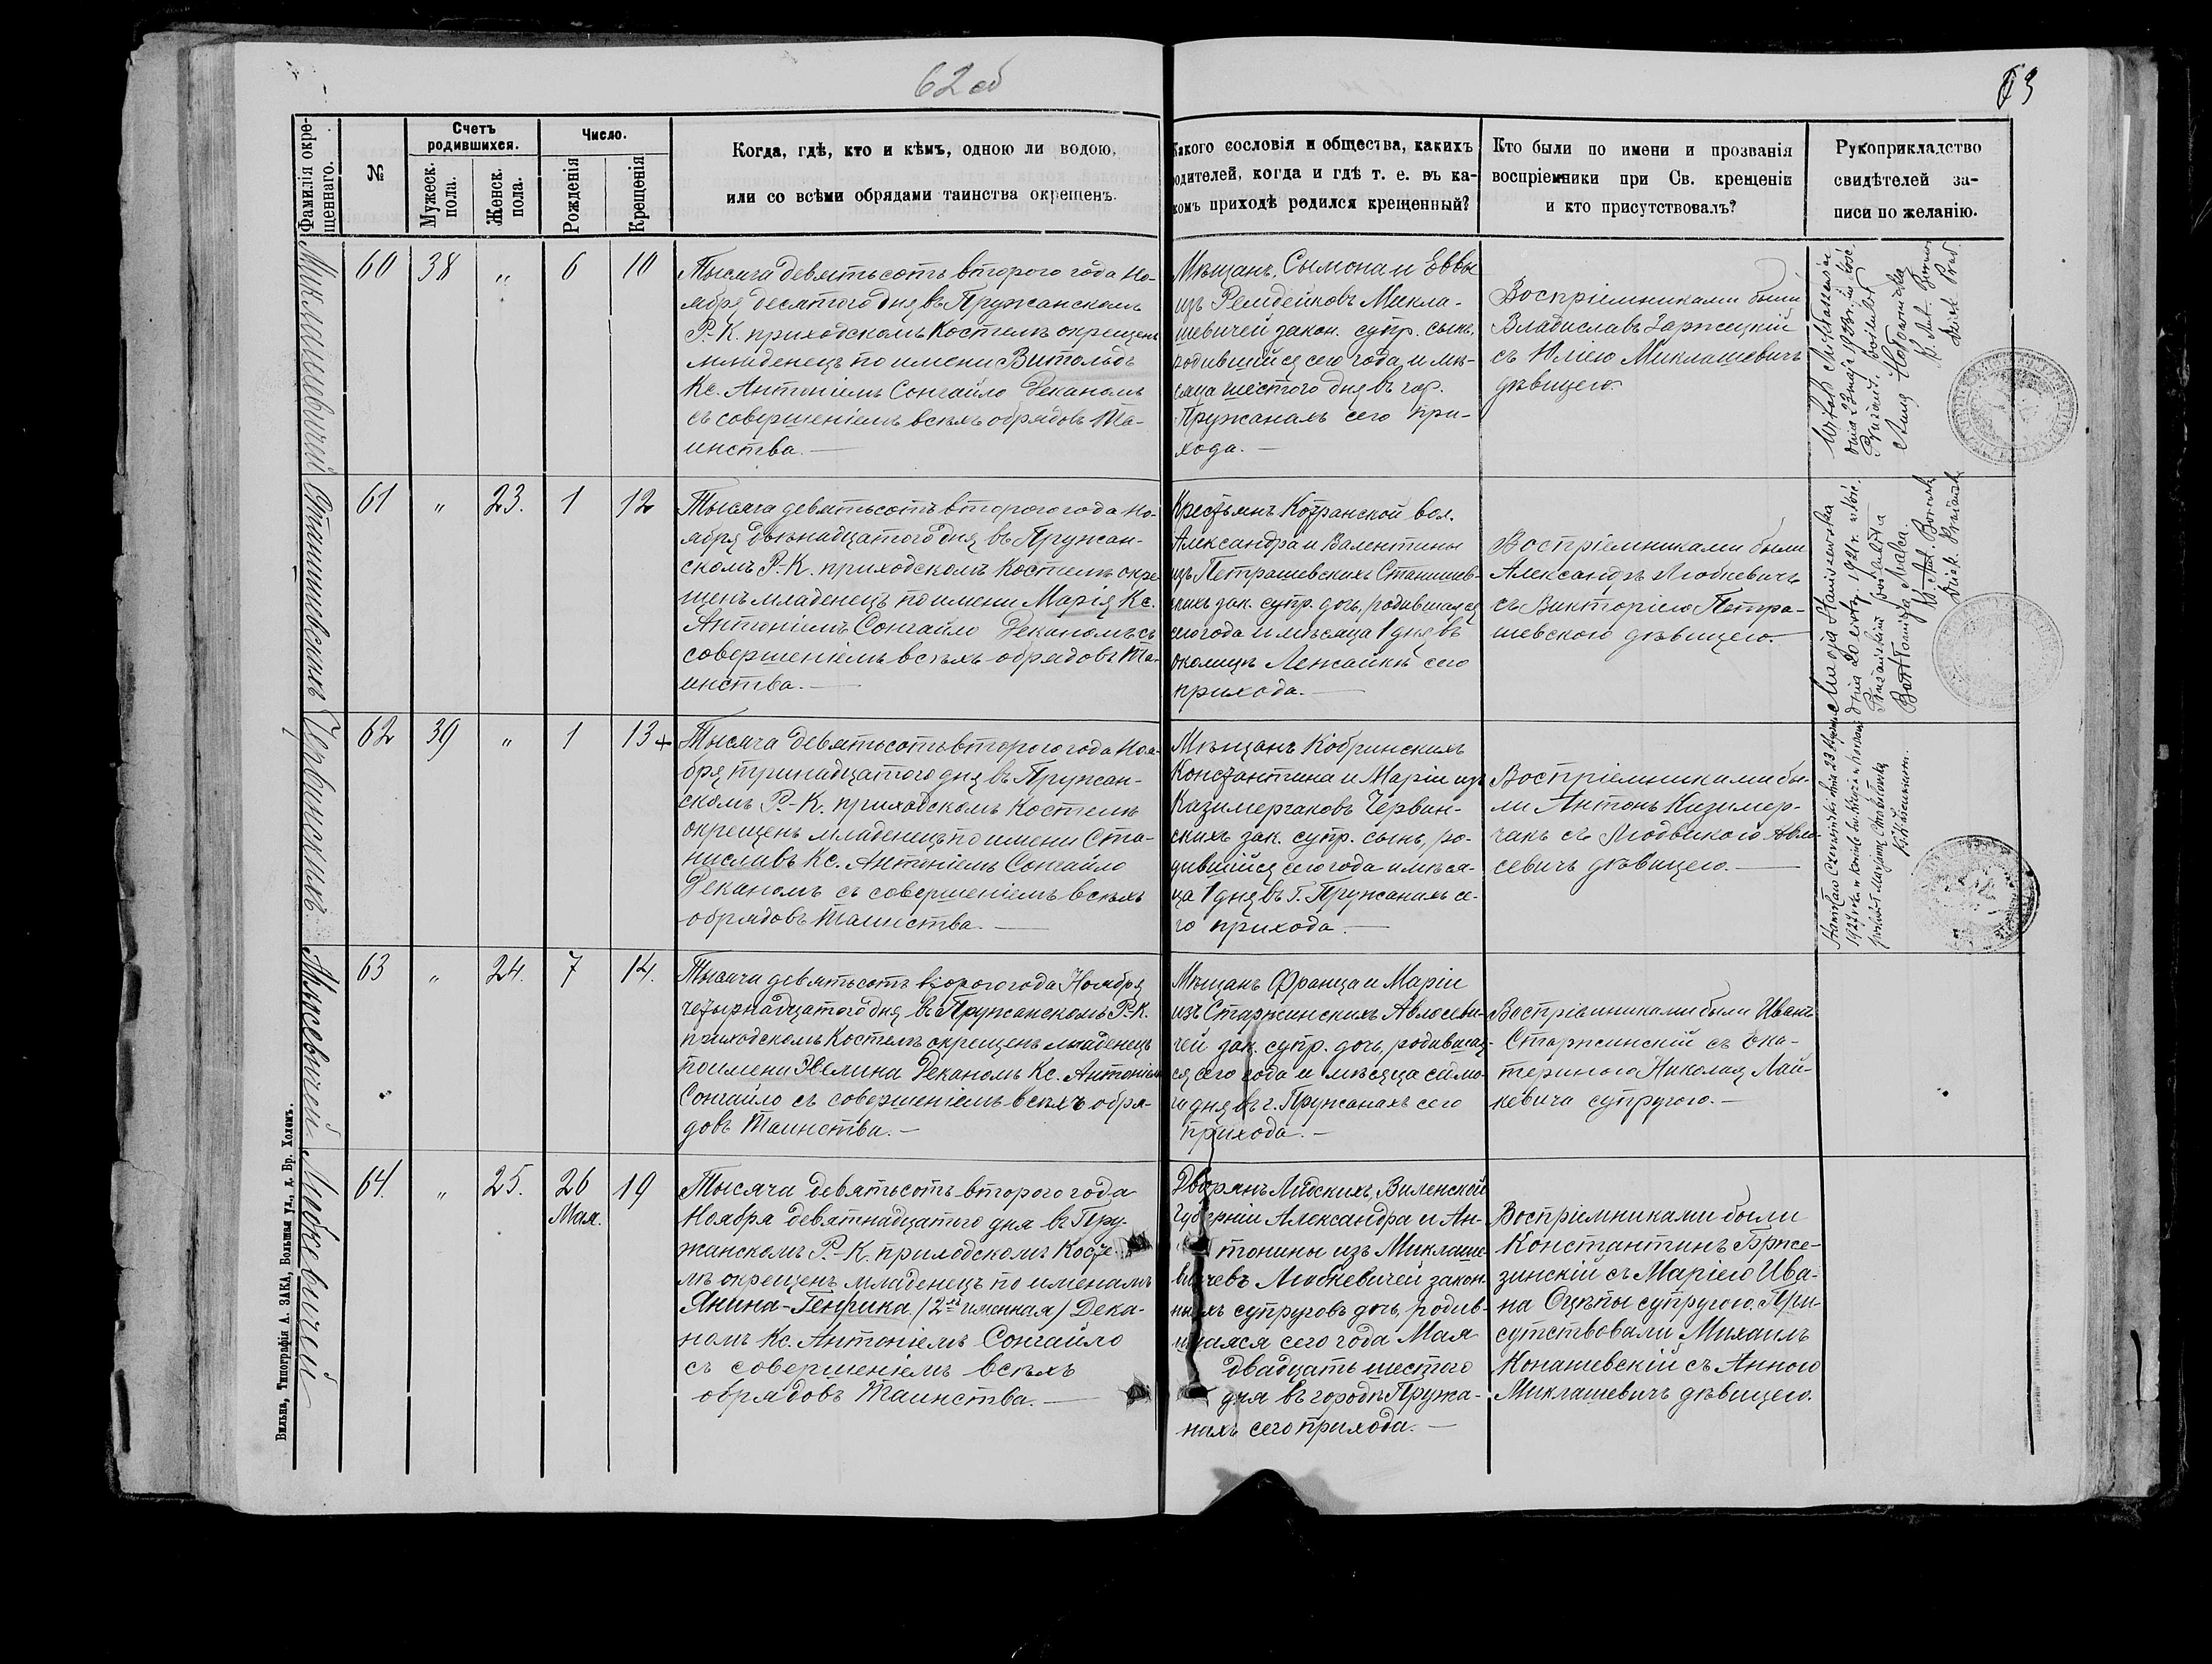 62 об
63
Фамилія окре-
щеннаго.
№
Счетъ
родившихся.
Мужеск.
пола.
Женск.
пола.
Число.
Рожденія
Крещенія
Когда, гдѣ, кто и кѣмъ, одною ли водою,
или со всѣми обрядами таинства окрещенъ.
Какого сословія и общества, какихъ
родителей, когда и гдѣ т. е. въ ка-
комъ приходѣ родился крещенный?
Кто были по имени и прозванія
воспріемники при Св. крещеніи
и кто присутствовалъ?
Рукоприкладство
свидѣтелей за-
писи по желанію.
Миклашевичей
60
38
"
6
10
Тысяча девятьсотъ второго года но-
ября десятого дня въ Пружанскомъ
Р. К. приходскомъ Костелѣ окрещенъ
младенецъ по имени Витольдъ
Кс. Антоніемъ Сонгайло Деканомъ
съ совершеніемъ всѣхъ обрядовъ Та-
инства. —
Мѣщанъ, Сымона и Еввы
изъ Ремдейковъ Микла-
шевичей закон. супр. сынъ,
родившійся сего года и мѣ-
сяца шестого дня въ гор.
Пружанахъ сего при-
хода. —
Воспріемниками были
Владиславъ Заржецкій
съ Юліею Миклашевичъ
дѣвицею.
Witold Mikłaszewicz
dnia 23 maja 1923 r.
61
"
23.
1
12
Станишевскихъ
Тысяча девятьсотъ второго года но-
ября двѣнадцатого дня въ Пружан-
скомъ Р.-К. приходскомъ Костелѣ окре-
щенъ младенецъ по имени Марія Кс.
Антоніемъ Сонгайло Деканомъ съ
совершеніемъ всѣхъ обрядовъ Та-
инства. —
Крестьянъ Котранской вол.
Александра и Валентины
изъ Петрашевскихъ Станишев-
скихъ зак. супр. дочь, родившаяся
сего года и мѣсяца 1 дня въ
околицѣ Ленсайкѣ сего
прихода. —
Воспріемниками были
Александръ Любкевичъ
съ Викторіею Петра-
шевскою дѣвицею. —
Marja Staniszewska
62
39
"
1
13 +
Червинскихъ
Тысяча девятьсотъ второго года ноя-
бря тринадцатого дня въ Пружан-
скомъ Р.-К. приходскомъ Костелѣ
окрещенъ младенецъ по имени Ста-
ниславъ Кс. Антоніемъ Сонгайло
Деканомъ съ совершеніемъ всѣхъ
обрядовъ Таинства. —
Мѣщанъ Кобринскихъ
Константина и Маріи изъ
Казимерчаковъ Червин-
скихъ зак. супр. сынъ, ро-
дившійся сего года и мѣся-
ца 1 дня въ г. Пружанахъ се-
го прихода. —
Воспріемниками бы-
ли Антонъ Казимер-
чакъ съ Людвикою Авло-
севичъ дѣвицею. —
Stanisław Czerwiński dnia 23
63
"
24.
7
14.
Тысяча девятьсотъ второго года Ноября
четырнадцатого дня въ Пружанскомъ Р.-К.
приходскомъ Костелѣ окрещенъ младенецъ
по имени Хелина Деканомъ Кс. Антоніемъ
Сонгайло съ совершеніемъ всѣхъ обря-
довъ Таинства. —
Мѣщанъ Франца и Маріи
изъ Старжинскихъ Авлосеви-
чей зак. супр. дочь, родившая-
ся сего года и мѣсяца седмо-
го дня въ г. Пружанахъ сего
прихода. —
Воспріемниками были Иванъ
Старжинскій съ Ека-
териною Николая Лай-
кевича супругою. —
Любкевичей
64.
"
25.
26
Мая.
19
Тысяча девятьсотъ второго года
Ноября девятнадцатого дня въ Пру-
жанскомъ Р.-К. приходскомъ Косте-
лѣ окрещенъ младенецъ по именамъ
Янина-Генрика /2хъ именная/ Дека-
номъ Кс. Антоніемъ Сонгайло
съ совершеніемъ всѣхъ
обрядовъ Таинства. —
Дворянъ Лидскихъ, Виленской
Губерніи Александра и Ан-
тонины изъ Миклаше-
вичевъ Любкевичей закон-
ныхъ супруговъ дочь, родив-
шаяся сего года Мая
двадцать шестого
дня въ городѣ Пружа-
нахъ сего прихода. —
Воспріемниками были
Константинъ Брже-
зинскій съ Маріею Ива-
на Оцѣпы супругою. При-
сутствовали Михаилъ
Конашевскій съ Анною
Миклашевичъ дѣвицею.
Вильна, Типографія А. ЗАКА, Большая ул., д. Бр. Холемъ.